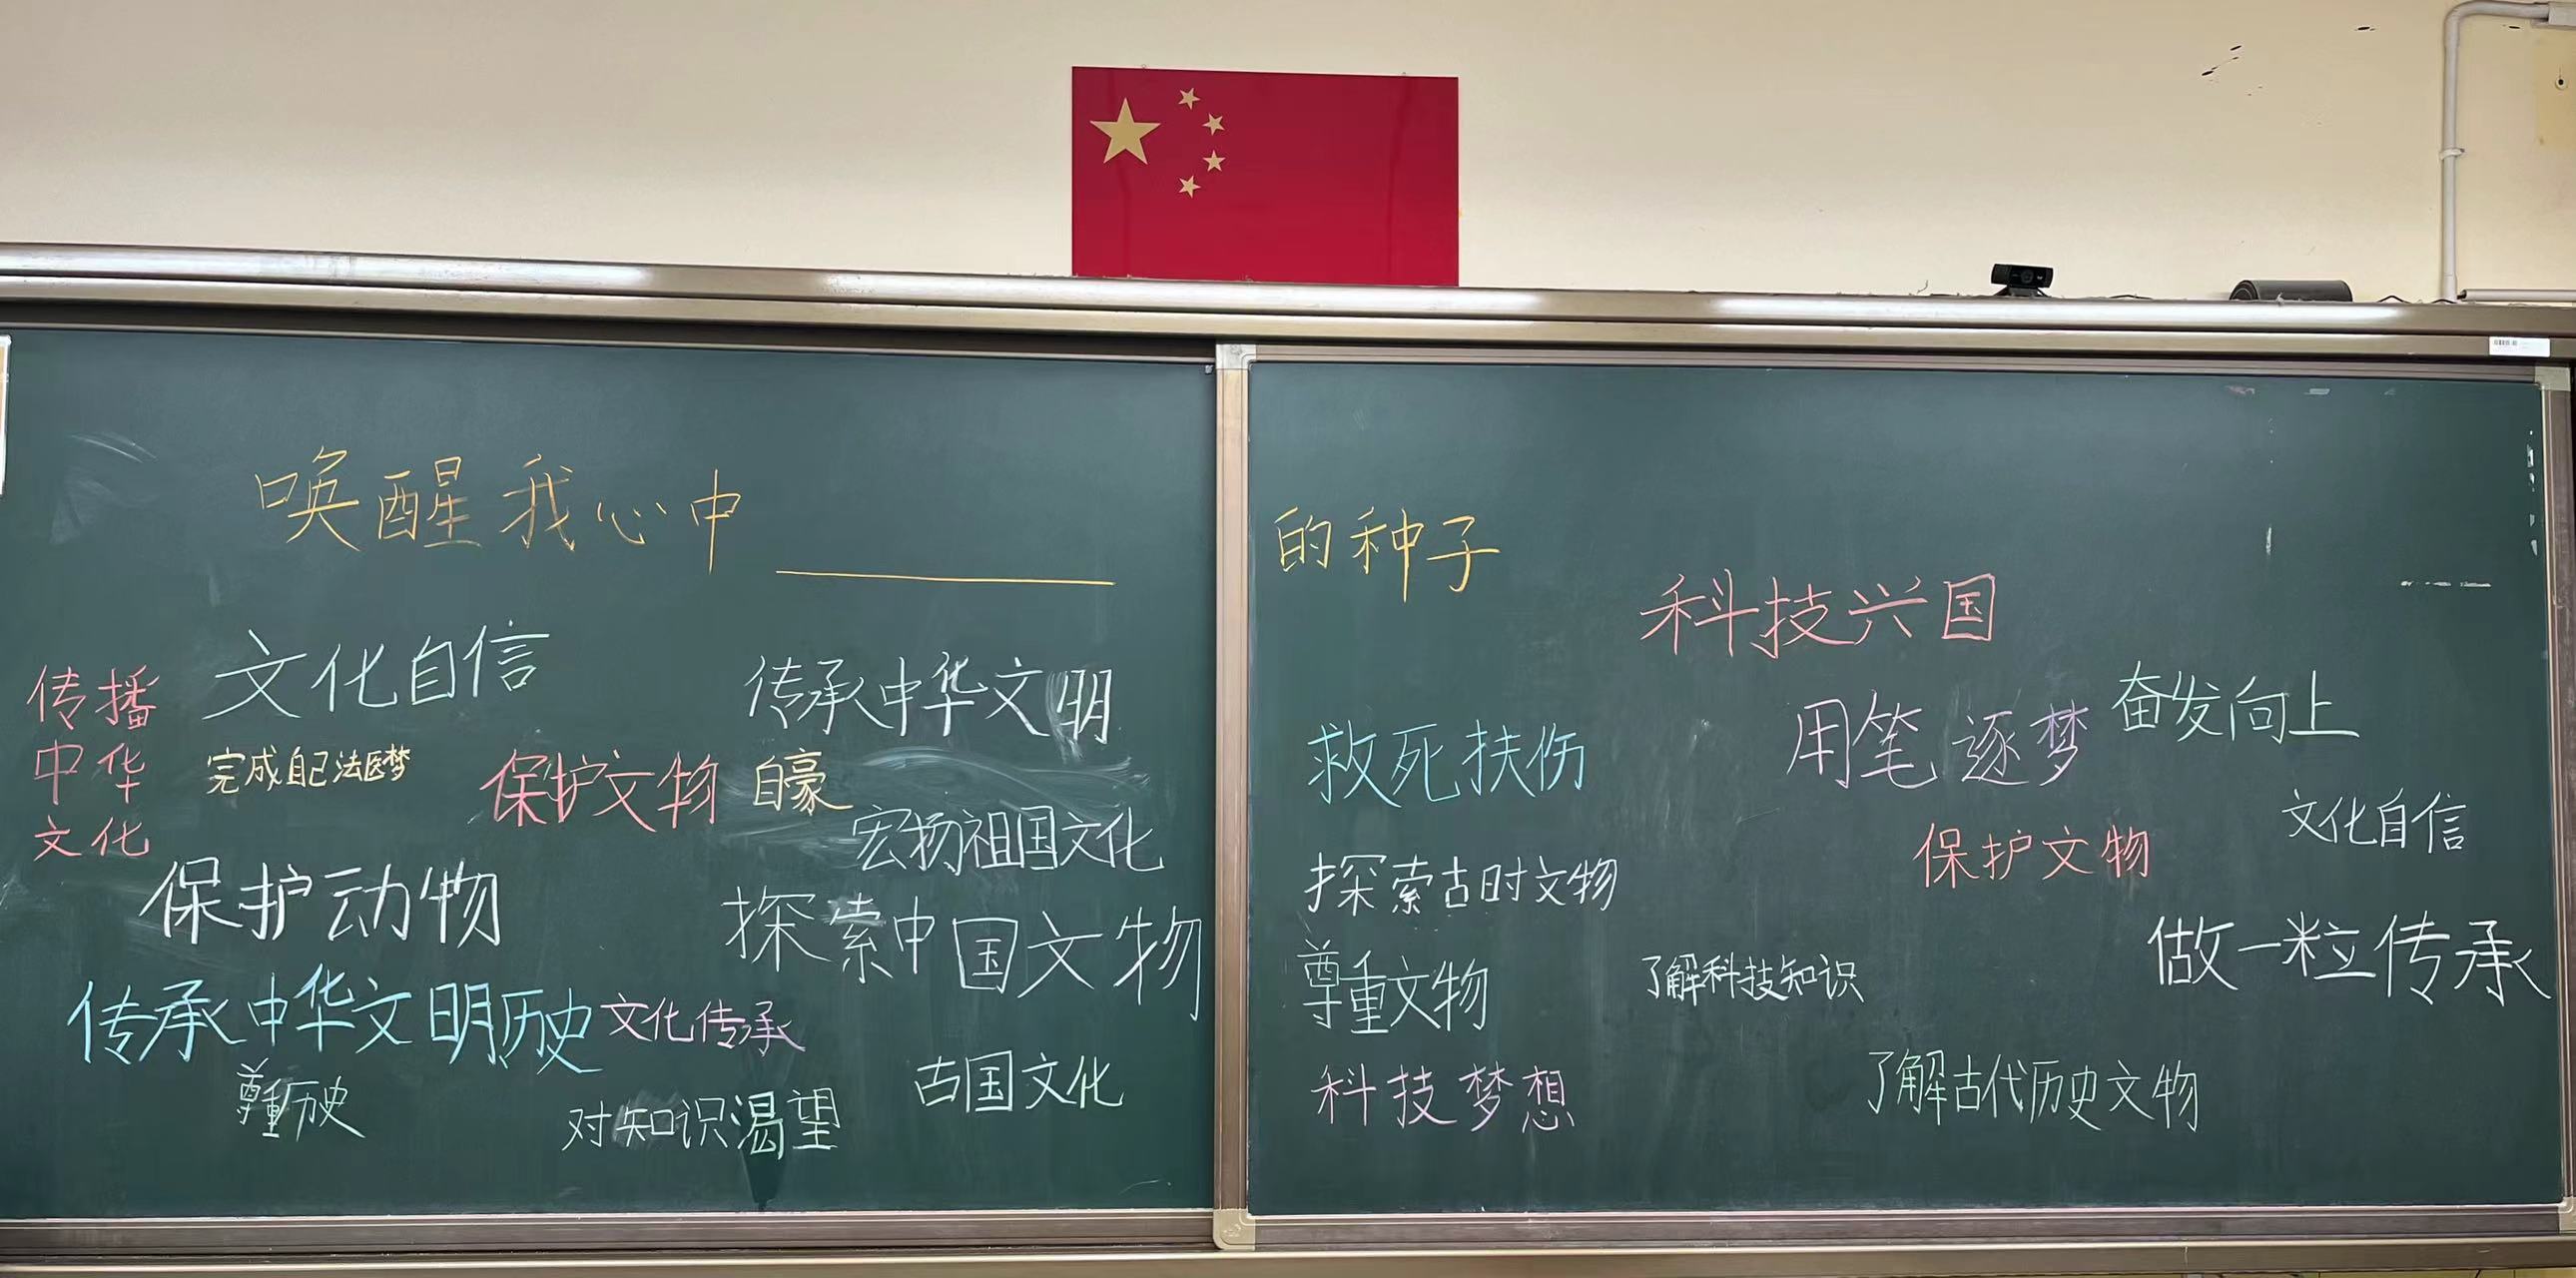 唤醒我心中______的种子
传播
中华
文化
文化自信
传承中华文明
完成自己法医梦
保护文物
自豪
宏扬祖国文化
保护动物
探索中国文物
传承中华文明历史
文化传承
尊重历史
对知识渴望
古国文化
科技兴国
奋发向上
用笔逐梦
救死扶伤
文化自信
保护文物
探索古时文物
做一粒传承
尊重文物
了解科技知识
科技梦想
了解古代历史文物